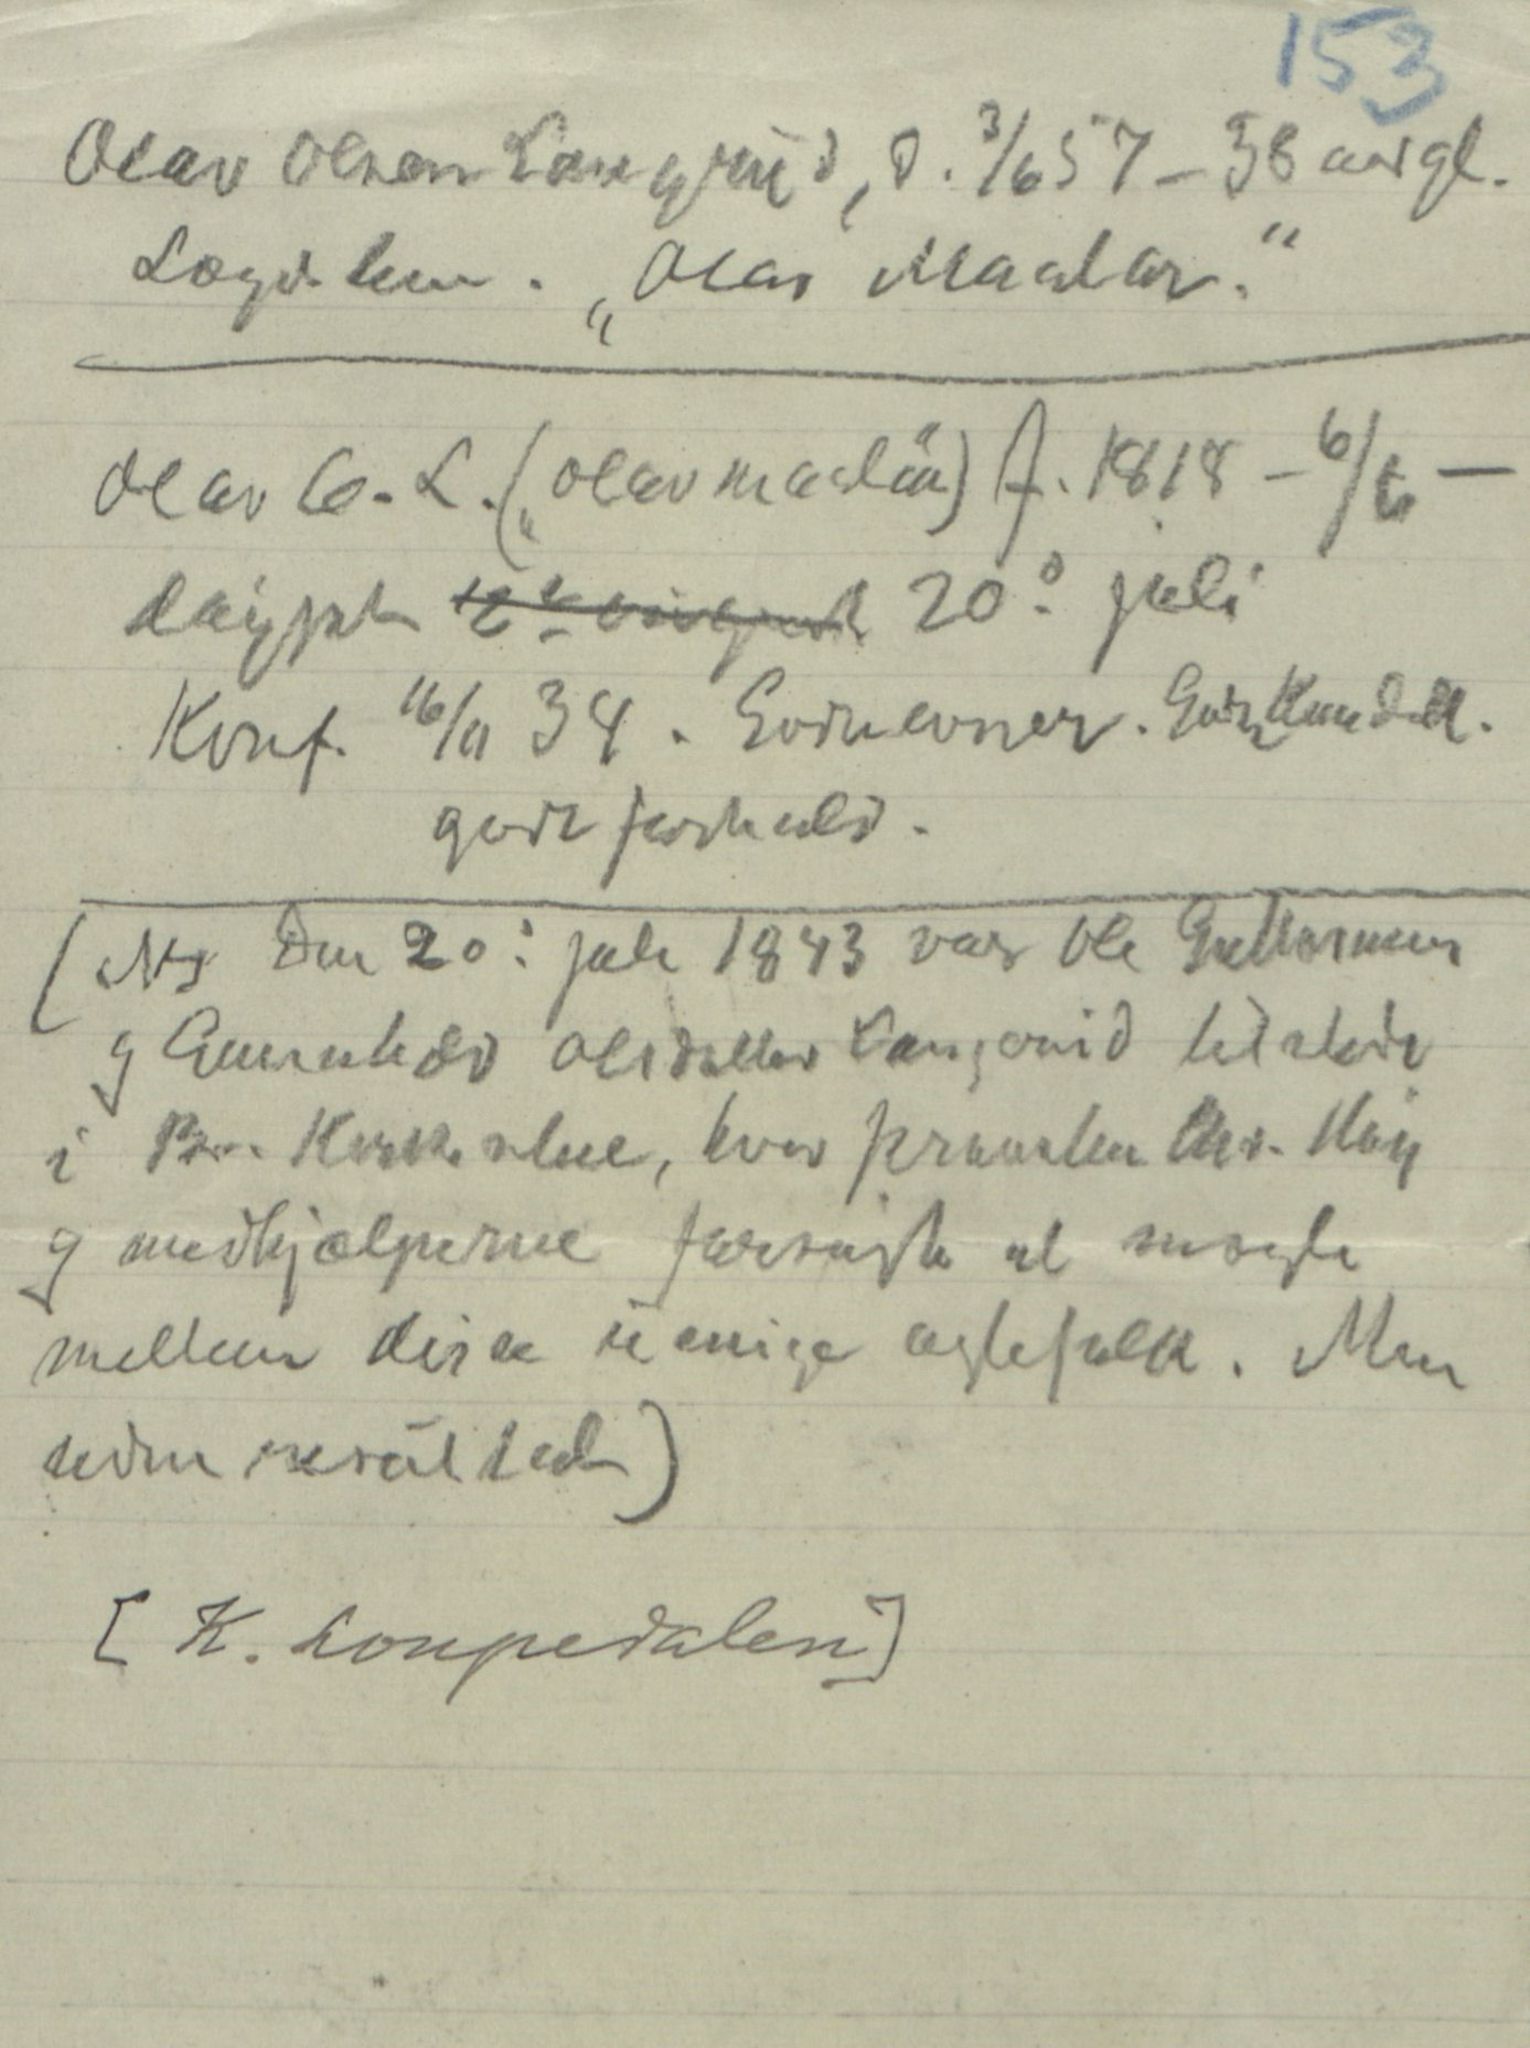 153
Olav Olsen Langerud, d. 3/6 57 – 38 aar gl.
Logd. lem. „Olav Maalar."
Olav O. L. („Olav maalar") f. 1818 – 6/6 –
døypt 20: juli
Konf. 16/11 34. Godt kundsk.
godt forhold.
(Den 20: juli 1843 var Ole Guttormsen
og Gunnhild Olsdatter Langerud tilstede
i Bø. Kirkestue, hvor prousten Chr. Høy
og medhjælperne forsøgte at mægle
mellem disse uenige egtefolk. Men
uden resultat)
[K. Loupedalen]